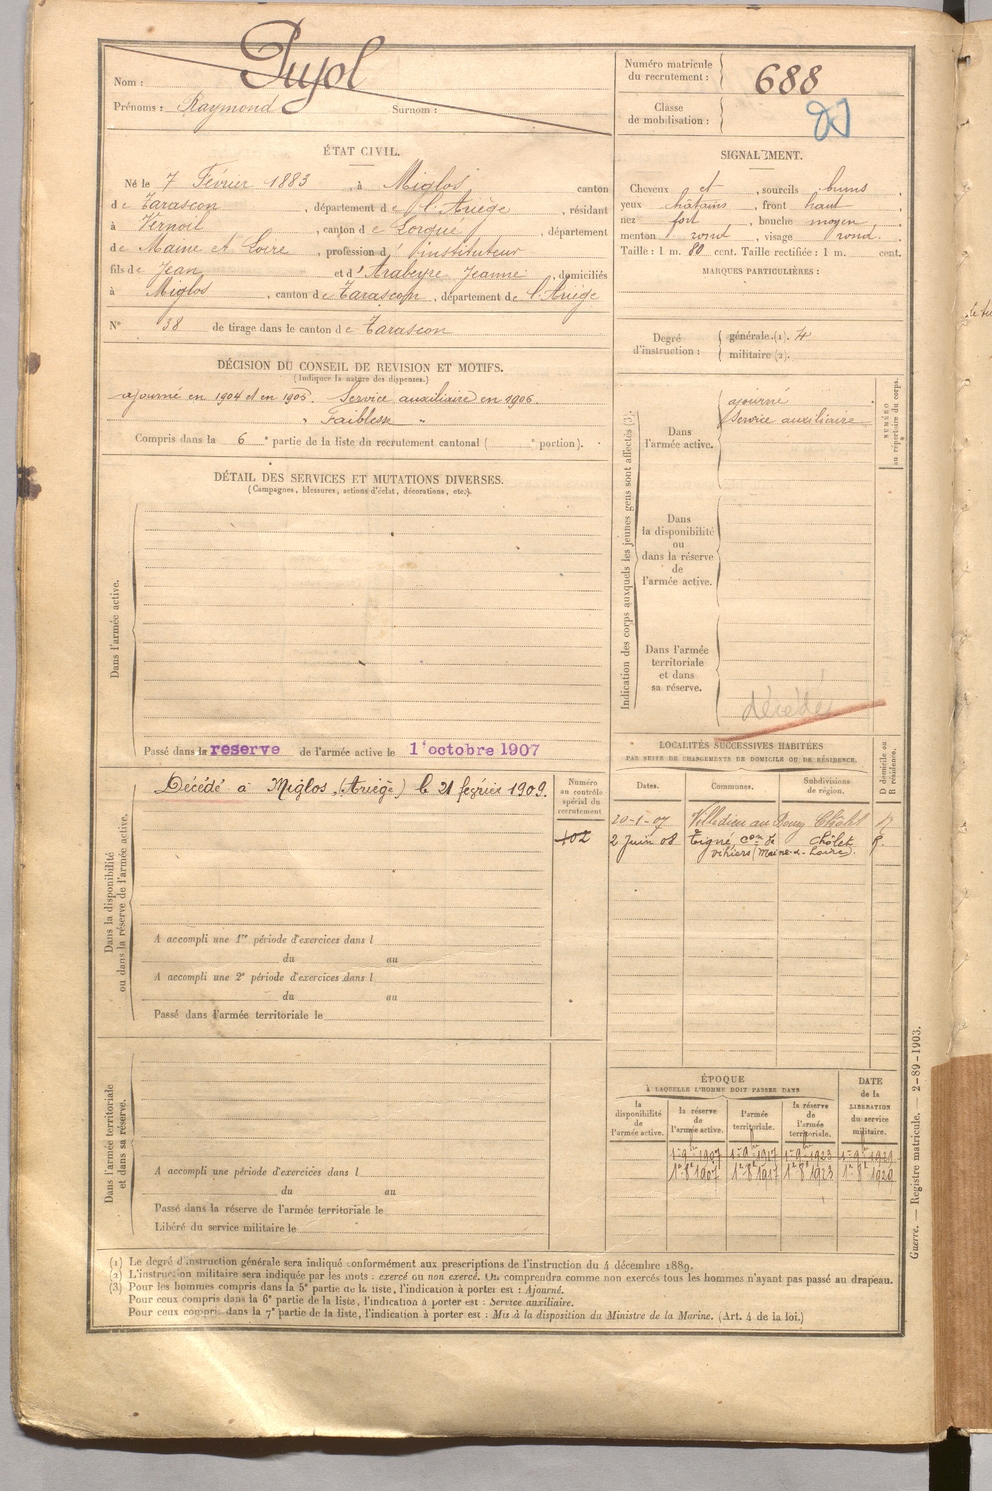 Nom : Pujol
Prénoms : Raymond Surnom :
Numéro matricule
du recrutement : 688
Classe
de mobilisation :
ÉTAT CIVIL.
Né le 7 Février 1883, à Miglos canton
de Tarascon, département de l'Ariège, résidant
à Vernoil, canton de , département
de Maine et Loire, profession d'instituteur
fils de Jean et d'Arabeyre Jeanne, domiciliés
à Miglos, canton de Tarascon, département de l'Ariège
N° 38 de tirage dans le canton de Tarascon
SIGNALEMENT.
Cheveux et , sourcils bruns ,
yeux châtains , front haut ,
nez fort , bouche moyen
menton rond , visage rond.
Taille : 1 m. 80 cent. Taille rectifiée : 1 m. cent.
MARQUES PARTICULIÈRES :
Degré
d'instruction :
générale.(1). 4
militaire (2).
DÉCISION DU CONSEIL DE REVISION ET MOTIFS.
(Indiquer la nature des dispenses.)
ajourné en 1904 et en 1905. Service auxiliaire en 1906.
" Faiblesse "
Compris dans la 6e partie de la liste du recrutement cantonal ( e portion).
DÉTAIL DES SERVICES ET MUTATIONS DIVERSES.
(Campagnes, blessures, actions d'éclat, décorations, etc.).
Dans l'armée active.
Passé dans la reserve de l'armée active le 1er octobre 1907
Indication des corps auxquels les jeunes gens sont affectés (3).
NUMÉRO
au répertoire du corps.
Dans
l'armée active.
ajourné
Service auxiliaire
Dans
la disponibilité
ou
dans la réserve
de
l'armée active.
Dans l'armée
territoriale
et dans
sa réserve.
décédé
Dans la disponibilité
ou dans la réserve de l'armée active.
Décédé à Miglos, (Ariège) le 21 février 1909.
Numéro
au contrôle
spécial du
recrutement
102
A accompli une 1re période d'exercices dans l
du au
A accompli une 2e période d'exercices dans l
du au
Passé dans l'armée territoriale le
LOCALITÉS SUCCESSIVES HABITÉES
PAR SUITE DE CHANGEMENTS DE DOMICILE OU DE RÉSIDENCE.
D domicile ou
R résidence.
Dates. Communes. Subdivisions
de région.
20-1-07 Cholet
2 Juin 08 Tigné, Con de Cholet R.
Vihiers (Maine-&-Loire).
Dans l'armée territoriale
et dans sa réserve.
A accompli une période d'exercices dans l
du au
Passé dans la réserve de l'armée territoriale le
Libéré du service militaire le
ÉPOQUE
À LAQUELLE L'HOMME DOIT PASSER DANS
DATE
de la
LIBÉRATION
du service
militaire.
la
disponibilité
de
l'armée active.
la réserve
de
l'armée active.
l'armée
territoriale.
la réserve
de
l'armée
territoriale.
(1) Le degré d'instruction générale sera indiqué conformément aux prescriptions de l'instruction du 4 décembre 1889.
(2) L'instruction militaire sera indiquée par les mots : exercé ou non exercé. On comprendra comme non exercés tous les hommes n'ayant pas passé au drapeau.
(3) Pour les hommes compris dans la 5e partie de la liste, l'indication à porter est : Ajourné.
Pour ceux compris dans la 6e partie de la liste, l'indication à porter est : Service auxiliaire.
Pour ceux compris dans la 7e partie de la liste, l'indication à porter est : Mis à la disposition du Ministre de la Marine. (Art. 4 de la loi.)
Guerre. — Registre matricule. — 2-89-1903.